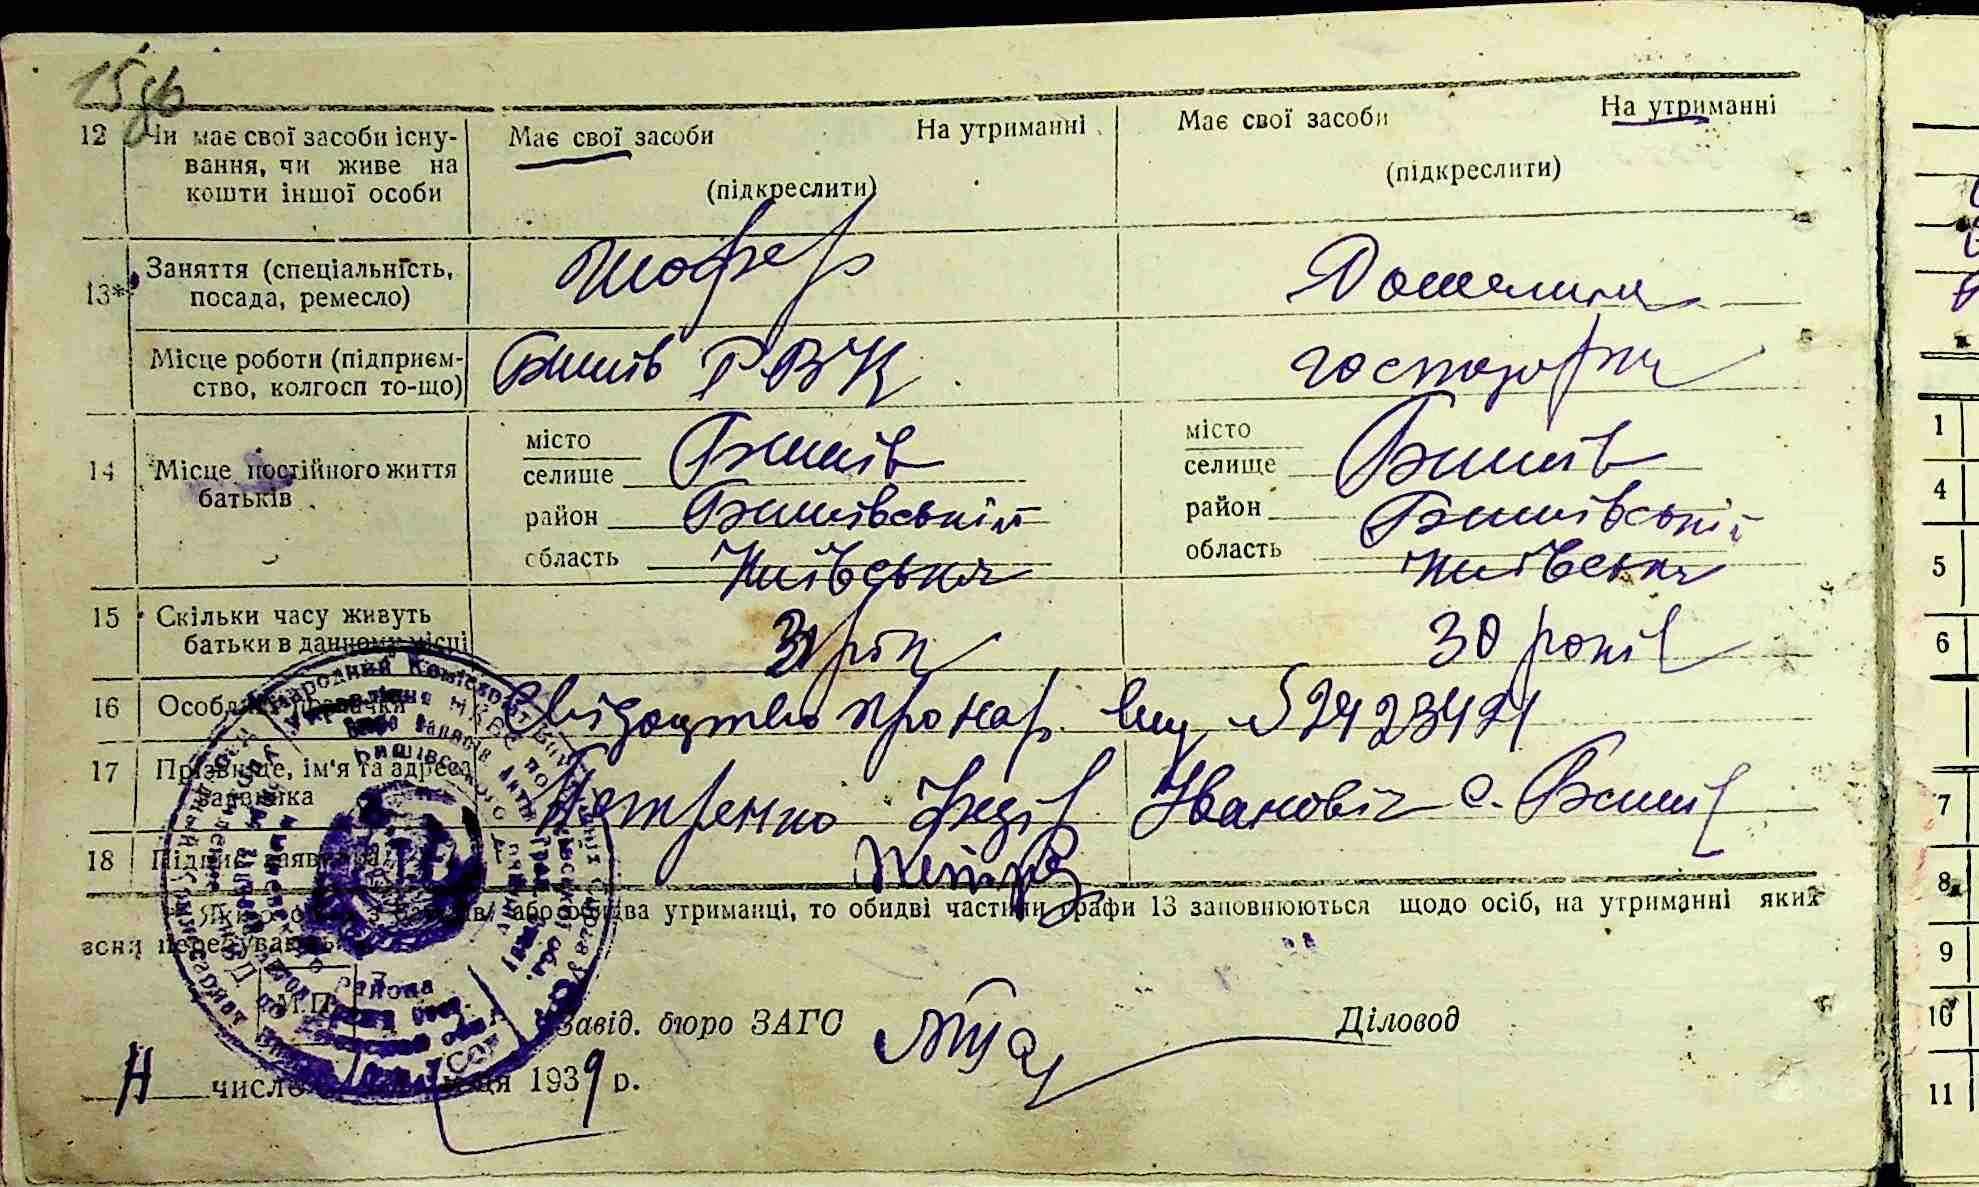 15зв
12 Чи має свої засоби існу- Має свої засоби На утриманні Має свої засоби На утриманні
вання, чи живе на
кошти іншої особи (підкреслити) (підкреслити)
13* Заняття (спеціальність, Шофер Домашня
посада, ремесло)
Місце роботи (підприєм- Бишів РВК господарка
ство, колгосп то-що)
14 Місце постійного життя місто Бишів місто Бишів
батьків селище селище
район Бишівський район Бишівський
область Київська область Київська
15 Скільки часу живуть 31 рік 30 років
батьки в данному місці
16 Особливі Свідоцтво про нар.
17 Прізвище, ім'я та адреса Петренко Федір Іванович с. Бишів
заявника
18 Підпис заявника
або обидва утриманці, то обидві частини графи 13 заповнюються щодо осіб, на утриманні яких
вони перебувають
М.П.
Завід. бюро ЗАГС Діловод
число 1939 р.
1
4
5
6
7
8
9
10
11